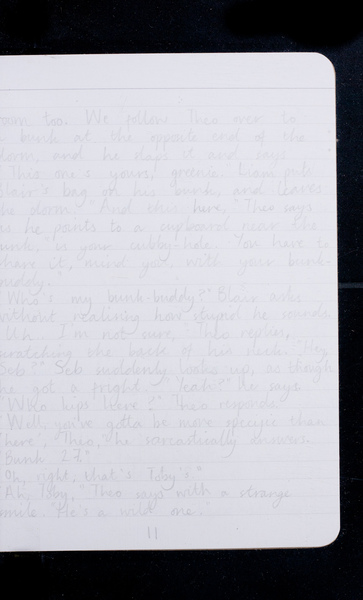 room too. We follow Theo over to
a bunk at the opposite end of the
dorm, and he slaps it and says
"This one's yours, greenie. Liam puts
Blair's bag on his bunk, and leaves
the dorm. "And this here," Theo says
as he points to a cupboard near the
bunk, "is your cubby-hole. You have to
share it, mind you, with your bunk-
buddy."
"Who's my bunk-buddy?" Blair asks
without realising how stupid he sounds.
"Uh, I'm not sure," Theo replies,
scratching the back of his neck. "Hey
Seb?" Seb suddenly looks up, as though
he got a fright. "Yeah?" He says.
"Who kips here?" Theo responds.
"Well, you've gotta be more specific than
'here', Theo," he sarcastically answers.
"Bunk 27."
"Oh, right, that's Toby's."
"Ah, Toby," Theo says with a strange
smile. "He's a wild one."
11